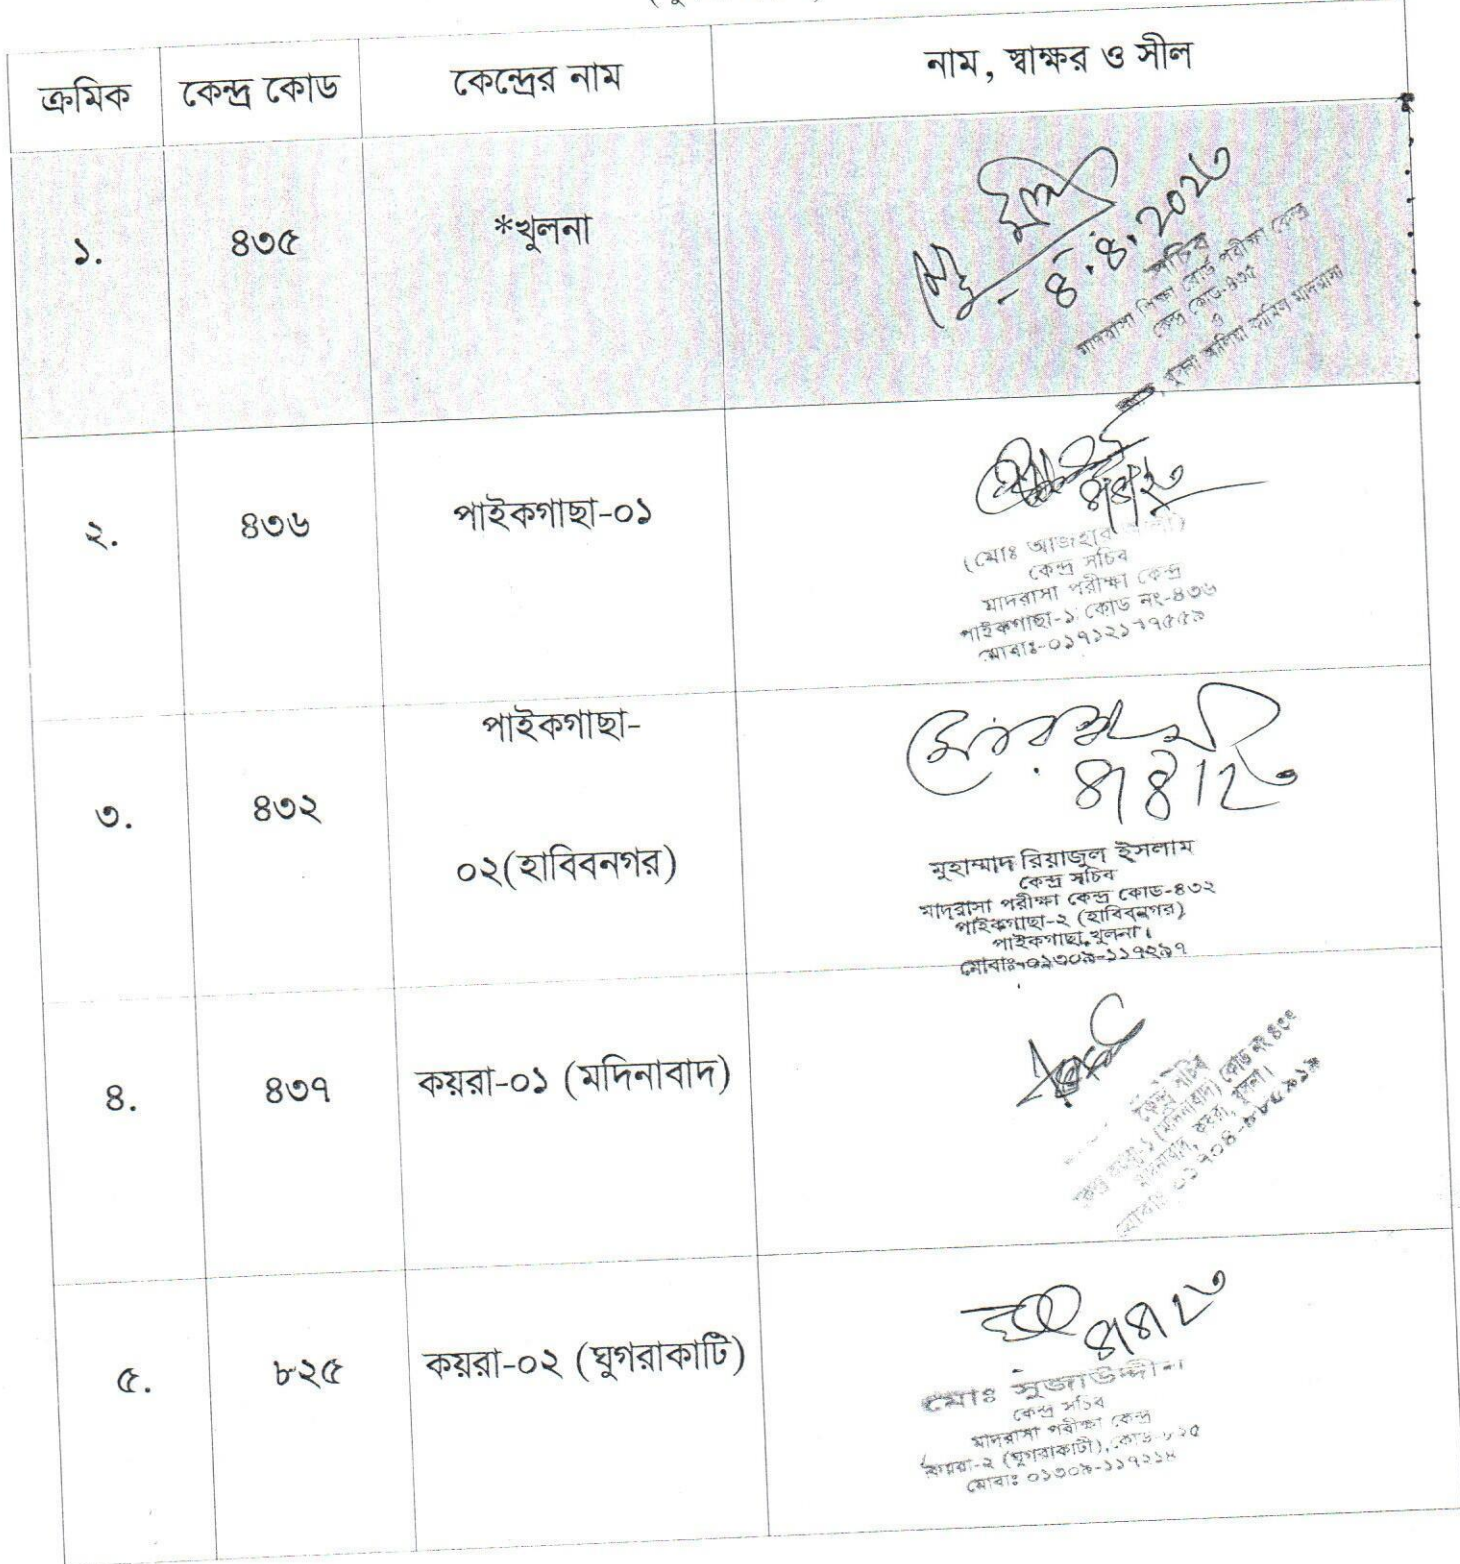 ক্রমিক কেন্দ্র কোড কেন্দ্রের নাম নাম, স্বাক্ষর ও সীল
১. ৪৩৫ *খুলনা
৪.৪.২০২৩
সচিব
মাদরাসা শিক্ষা বোর্ড পরীক্ষা কেন্দ্র
কেন্দ্র কোড-৪৩৫
ও
খুলনা আলিয়া কামিল মাদরাসা
২. ৪৩৬ পাইকগাছা-০১
(মোঃ আজহার
কেন্দ্র সচিব
মাদরাসা পরীক্ষা কেন্দ্র
পাইকগাছা-১ কোড নং-৪৩৬
মোবাঃ-
পাইকগাছা-
৩. ৪৩২ ০২(হাবিবনগর)
৪/৪/২৩
মুহাম্মাদ রিয়াজুল ইসলাম
কেন্দ্র সচিব
মাদরাসা পরীক্ষা কেন্দ্র কোড-৪৩২
পাইকগাছা-২ (হাবিবনগর)
পাইকগাছা, খুলনা।
মোবাঃ-০১৩০৯-১১৭২৯৭
৪. ৪৩৭ কয়রা-০১ (মদিনাবাদ)
কেন্দ্র সচিব
(মদিনাবাদ) কোড নং ৪৩৭
মদিনাবাদ, কয়রা, খুলনা।
৫. ৮২৫ কয়রা-০২ (ঘুগরাকাটি)
৪/৪/২৩
মোঃ সুজাউদ্দীন
কেন্দ্র সচিব
মাদরাসা পরীক্ষা কেন্দ্র
কয়রা-২ (ঘুগরাকাটী), কোড-৮২৫
মোবাঃ